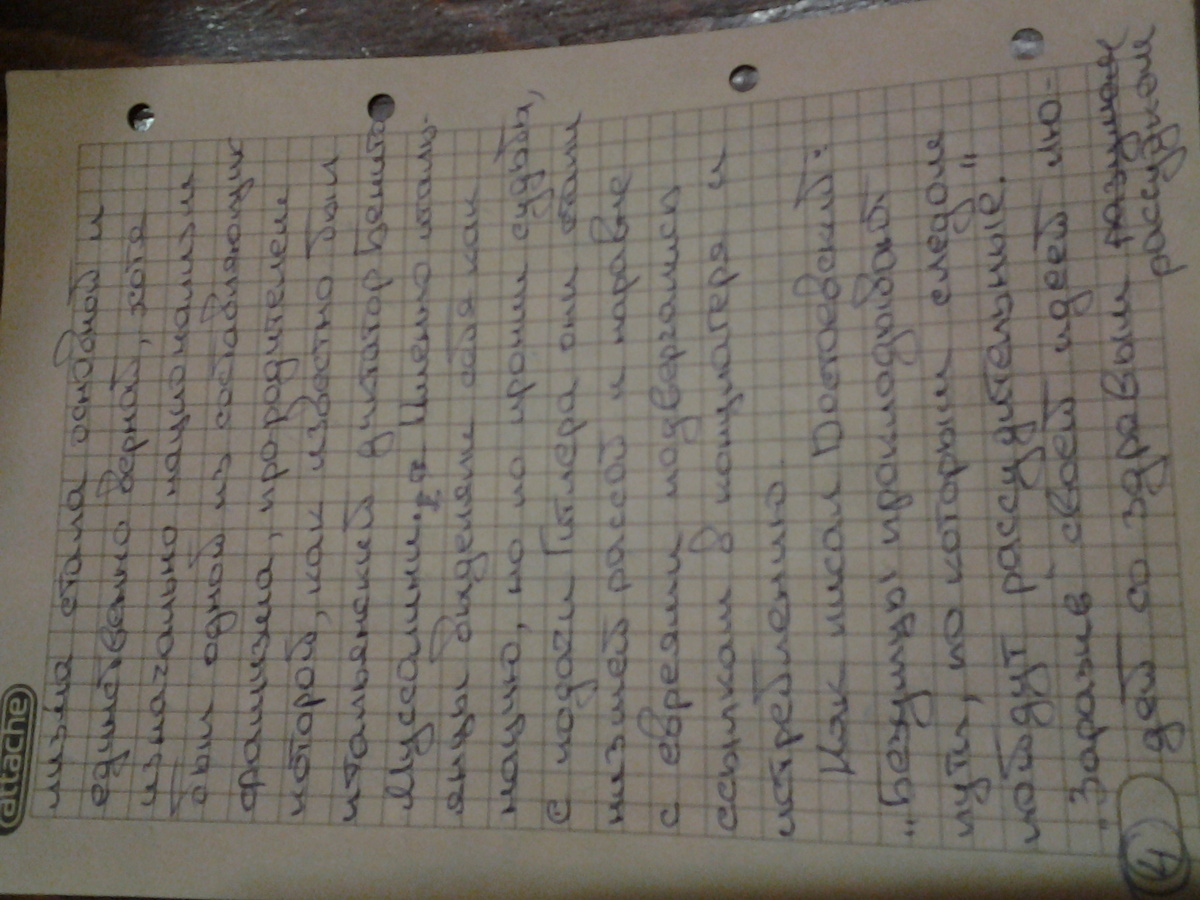 attache
лизма стала основной и
единственно верной, хотя
изначально национализм
был одной из составляющих
фашизма, прородителем
которой, как известно был
итальянский диктатор Бенито
Муссолини. Именно италь-
янцы выделяли себя как
нацию, но по иронии судьбы,
с подачи Гитлера они стали
низшей рассой и наравне
с евреями подвергались
ссылкам в концлагеря и
истреблению.
Как писал Достоевский:
„Безумцы прокладывают
пути, по которым следом
пойдут рассудительные."
„Заразив своей идеей лю-
дей со здравым разумом
рассудком
4